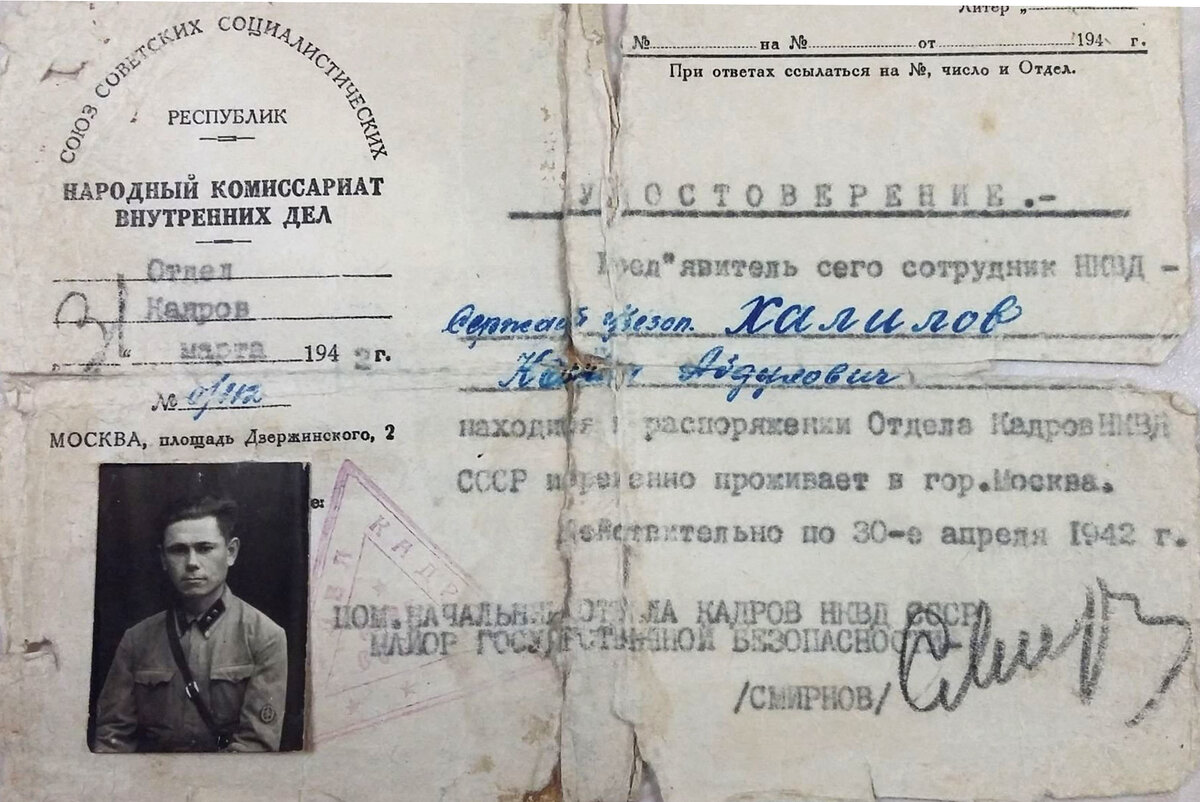 СОЮЗ СОВЕТСКИХ СОЦИАЛИСТИЧЕСКИХ
РЕСПУБЛИК
НАРОДНЫЙ КОМИССАРИАТ
ВНУТРЕННИХ ДЕЛ
Отдел
Кадров
31 марта 1942 г.
№
МОСКВА, площадь Дзержинского, 2
Литер „
№ на № от 194 г.
При ответах ссылаться на №, число и Отдел.
УДОСТОВЕРЕНИЕ.-
Пред"явитель сего сотрудник НКВД -
Сержант Госбезоп. Халилов
Абдулович
находится в распоряжении Отдела Кадров НКВД
СССР временно проживает в гор.Москва.
Действительно по 30-е апреля 1942 г.
ПОМ.НАЧАЛЬНИК ОТДЕЛА КАДРОВ НКВД СССР
МАЙОР ГОСУДРСТВЕННОЙ БЕЗОПАСНОСТИ-
/СМИРНОВ/
КАДР